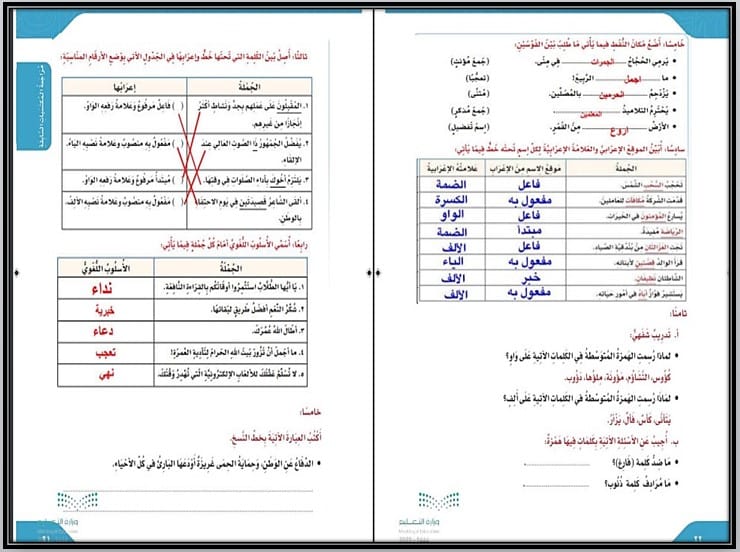 مُرَاجَعَةُ المُكْتَسَبَاتِ السَّابِقَةِ
ثالثًا: أَصِلُ بَيْنَ الكَلِمَةِ الَّتي تَحْتَهَا خَطٌّ وإعرابِهَا فِي الجَدْوَلِ الآتي بِوَضْعِ الأَرقَامِ المُنَاسِبَةِ:
الجُمْلَةُ إعرابُهَا
١. المُقْبِلُونَ عَلَى عَمَلِهم بِجِدٍّ ونَشاطٍ أَكْثَرُ إنْجازًا مِنْ غيرِهِم. ( ) فَاعِلٌ مَرفُوعٌ وعَلامةُ رَفعِهِ الوَاو.
٢. يُفَضِّلُ الجُمْهُورُ ذَا الصَّوتِ العَالي عِندَ الإلقَاء. ( ) مَفْعُولٌ بِهِ مَنصُوبٌ وعَلامَةُ نَصْبِهِ اليَاءُ.
٣. يَلتَزِمُ أَخُوكَ بِأَدَاءِ الصَّلَواتِ فِي وَقتِهَا. ( ) مُبتَدَأٌ مَرفُوعٌ وعَلامَةُ رَفعِهِ الوَاو.
٤. أَلقَى الشَّاعِرُ قَصِيدَتَينِ فِي يَومِ الاحتِفَا بِالوَطَنِ. ( ) مَفْعُولٌ بِهِ مَنصُوبٌ وعَلامَةُ نَصْبِهِ الأَلِف.
رابعًا: أُسَمِّي الأُسلُوبَ اللُّغَوِيَّ أَمَامَ كُلِّ جُملَةٍ فِيمَا يَأتي:
الجُمْلَةُ الأُسلُوبُ اللُّغَوِيُّ
١. يَا أَيُّهَا الطُّلَّابُ استَثْمِرُوا أوقَاتَكُم بِالقِرَاءَةِ النَّافِعَةِ. نداء
٢. شُكْرُ النِّعَمِ أَفضَلُ طَرِيقٍ لِبَقَائِهَا. خبرية
٣. أَطَالَ اللهُ عُمُرَكَ. دعاء
٤. مَا أَجمَلَ أَنْ تَزُورَ بَيتَ اللهِ الحَرَامِ لِتَأدِيَةِ العُمرَةِ! تعجب
٥. لَا تُسَلِّمْ عَقْلَكَ لِلأَلعَابِ الإلكترُونِيَّةِ الَّتي تُهدِرُ وَقْتَكَ. نهي
خامسًا:
أَكْتُبُ العِبَارَةَ الآتِيَةَ بِخَطِّ النَّسخِ.
• الدِّفَاعُ عَنِ الوَطَنِ، وَحِمَايَةُ الحِمَى غَرِيزَةٌ أَوْدَعَهَا البَارِئُ في كُلِّ الأَحْيَاءِ.
وزارة التعليم
٢١
خامسًا: أَضَعُ مَكَانَ النُّقَطِ فيما يَأْتي مَا طُلِبَ بَيْنَ القَوْسَيْنِ:
• يَرْمِي الحُجَّاجُ الجمرات فِي مِنَى. (جَمعُ مُؤنَّثٍ)
• ما اجمل الرَّبيعَ! (تعجُّبًا)
• يَزْدَحِمُ الحرمين بالمُصَلِّينَ. (مُثَنًّى)
• يَحْتَرِمُ التلاميذُ المعلمين (جَمعُ مُذكَّرٍ)
• الأَرْضُ اروع مِنَ القَمَرِ. (اِسمُ تَفضِيلٍ)
سادسًا: أُبَيِّنُ المَوقِعَ الإعرَابِيَّ والعَلَامَةَ الإعرَابِيَّةَ لِكُلِّ اسمٍ تَحتَهُ خَطٌّ فِيمَا يَأْتي:
الجُملَةُ مَوقِعُ الاسمِ مِنَ الإعرَاب عَلَامَتُهُ الإعرَابِيَّةُ
تَحجُبُ السُّحُبُ الشَّمْسَ. فاعل الضمة
قَدَّمَتِ الشَّرِكَةُ مُكَافَآتٍ لِلعَامِلِينَ. مفعول به الكسرة
يُسَارِعُ المُؤمِنُونَ في الخَيرَاتِ. فاعل الواو
الرِّيَاضَةُ مُفِيدَةٌ. مبتدأ الضمة
نَجَتِ الغَزَالَتَانِ مِنْ بُندُقِيَّةِ الصَّيَّادِ. فاعل الالف
قَرَأَ الوَالِدُ قِصَّتَينِ لِأَبنَائِهِ. مفعول به الياء
الشَّاطِئَانِ نَظِيفَانِ. خبر الالف
يَستَشِيرُ فَوَّازٌ أَبَاهُ في أُمُورِ حَيَاتِهِ. مفعول به الالف
ثامنًا:
أ. تَدرِيبٌ شَفَهِيٌّ:
لِمَاذَا رُسِمَتِ الهَمزَةُ المُتَوَسِّطَةُ في الكَلِمَاتِ الآتِيَةِ عَلَى وَاوٍ؟
كُؤُوس، التَّشَاؤُم، مَؤُونَة، مِلْؤُها، دَؤُوب.
• لِمَاذَا رُسِمَتِ الهَمزَةُ المُتَوَسِّطَةُ في الكَلِمَاتِ الآتِيَةِ عَلَى أَلِفٍ؟
يَتَأَنَّى، كَأْس، فَأْل، يَزْأَرُ.
ب. أُجِيبُ عَنِ الأَسئِلَةِ الآتِيَةِ بِكَلِمَاتٍ فِيهَا هَمزَةٌ:
• مَا ضِدُّ كَلِمَةِ (فَارِغٍ)؟
• مَا مُرَادِفُ كَلِمَةِ ذُنُوب؟
وزارة التعليم
٢٢